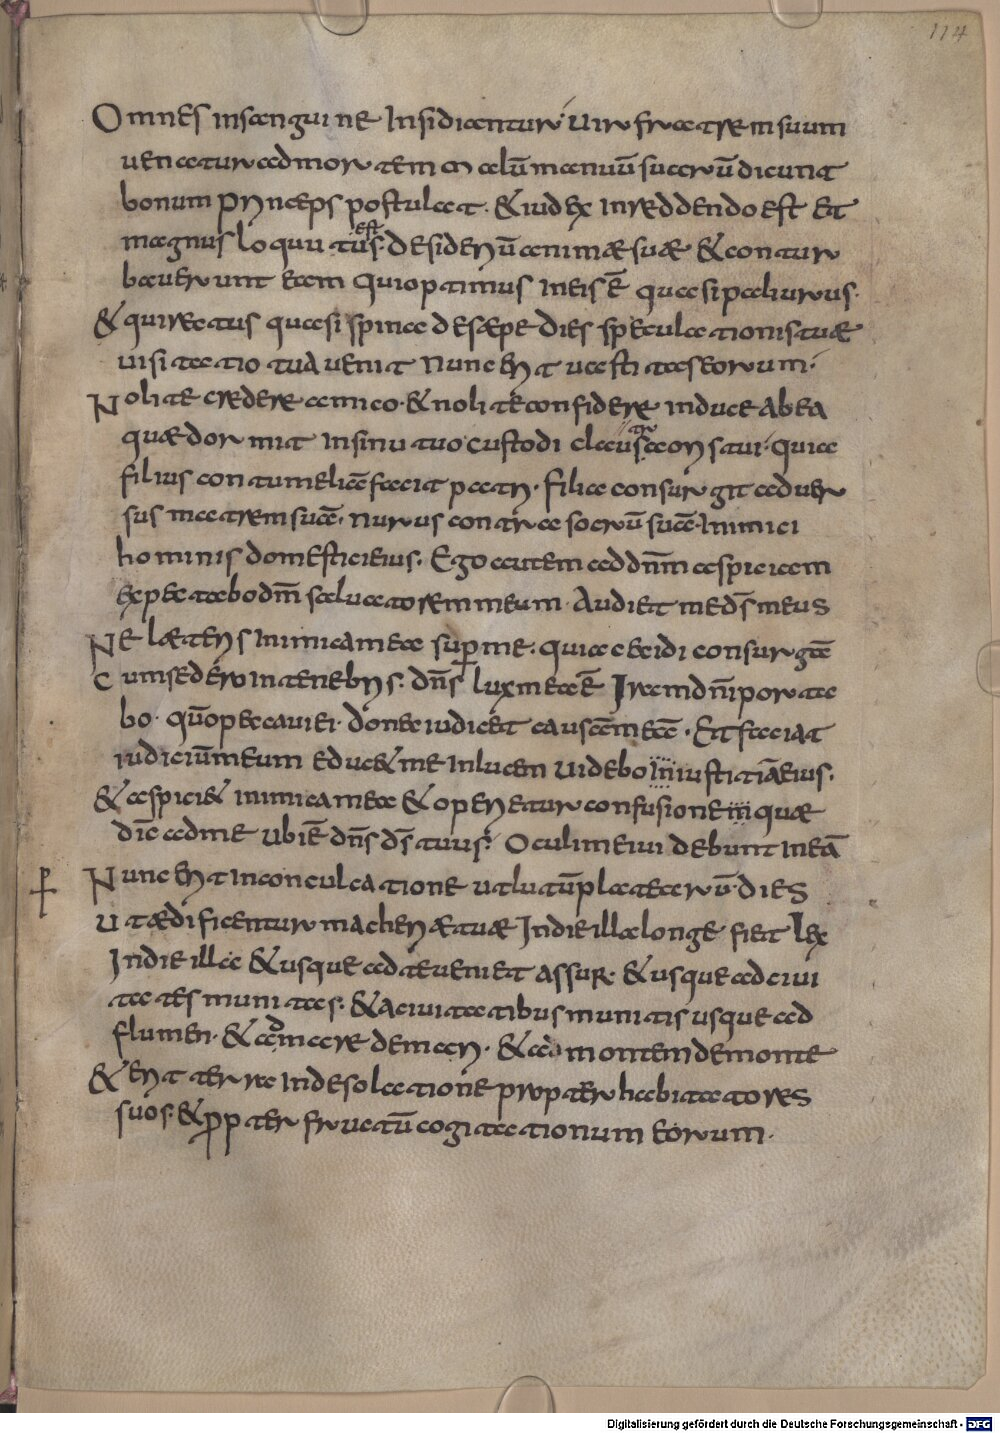 114
Omnes in sanguine insidiantur. Uir fratrem suum
uenatur ad mortem malū manuū suarū dicunt
bonum princeps postulat. & iudex in reddendo est Et
magnus locutus est desideriū animæ suæ & contur
bauerunt eam Qui optimus in eis ē quasi paliurus.
& qui rectus quasi spina de sæpe dies speculationis tuæ
uisitatio tua uenit Nunc erit uastitas eorum.
Nolite credere amico. & nolite confidere in duce Ab ea
quæ dormit in sinu tuo custodi claustra oris tui. Quia
filius contumeliā facit patri. filia consurgit aduer
sus matrem suā. nurus contra socrū suā. Inimici
hominis domestici eius. Ego autem ad dn̄m aspiciam
expectabo dm̄ saluatorem meum Audiet me ds̄ meus
Ne læteris inimica mea super me. quia cecidi consurgā
Cum sedero in tenebris. dn̄s lux mea ē Iram dn̄i porta
bo. qm̄ peccaui ei. donec iudicet causam meā. Et faciat
iudiciū meum educ& me in lucem uidebo in iustitiā eius.
& aspici& inimica mea & operietur confusione in quæ
dic̄ ad me Ubi ē dn̄s ds̄ tuus. Oculi mei uidebunt in eā
Nunc erit in conculcatione ut lutū platearū. dies
Ut ædificentur maceriæ tuæ In die illa longe fiet Lex
In die illa & usque ad te ueniet assur. & usque ad ciui
tates munitas. & a ciuitatibus munitis usque ad
flumen. & ad mare de mari. & ad montem de monte
& erit terra in desolatione propter habitatores
suos. & propter fructū cogitationum eorum.
Digitalisierung gefördert durch die Deutsche Forschungsgemeinschaft - DFG